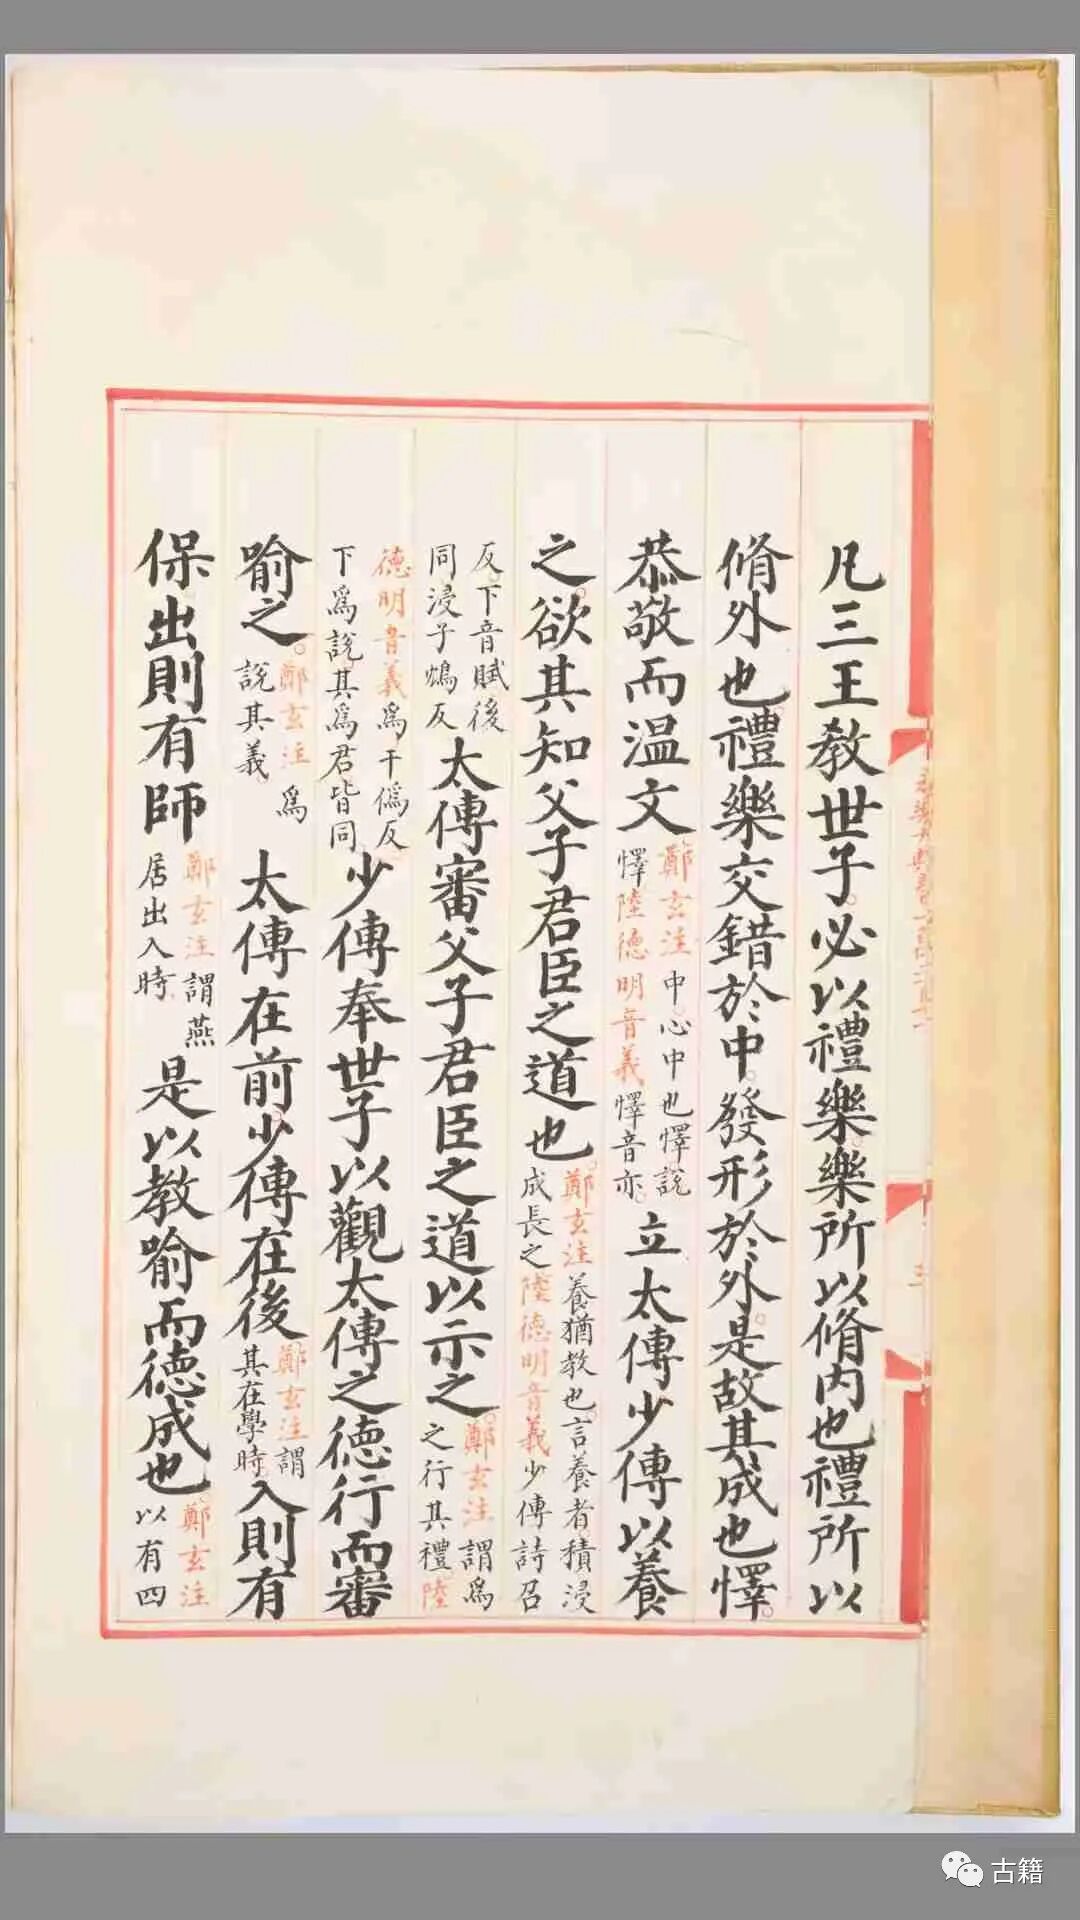 凡三王教世子必以禮樂樂所以脩内也禮所以
脩外也禮樂交錯於中發形於外是故其成也懌
恭敬而温文鄭玄注中心中也懌說
懌陸德明音義懌音亦立太傅少傅以養
之欲其知父子君臣之道也鄭玄注養猶教也言養者積浸
成長之陸德明音義少傅詩召
反下音賦後
同浸子鴆反太傅審父子君臣之道以示之鄭玄注謂爲
之行其禮陸
德明音義爲于僞反
下爲說其爲君皆同少傅奉世子以觀太傅之德行而審
喻之鄭玄注爲
說其義太傅在前少傅在後鄭玄注謂
其在學時入則有
保出則有師鄭玄注謂燕
居出入時是以教喻而德成也鄭玄注
以有四
古籍